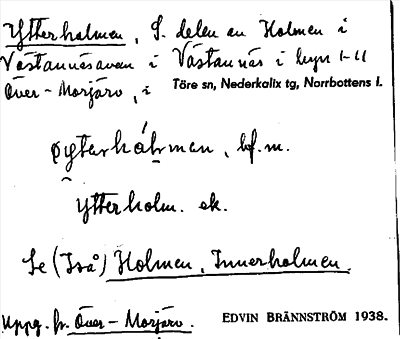 Ytterholmen, S. delen av Holmen i
Västannäsavan i Västannäs i byn
Över-Morjärv, i Töre sn, Nederkalix tg, Norrbottens l.
yterhólmen, bf. m.
Ytterholm. ek.
Se (Två) Holmen, Innerholmen.
Uppg. fr. Över-Morjärv. EDVIN BRÄNNSTRÖM 1938.